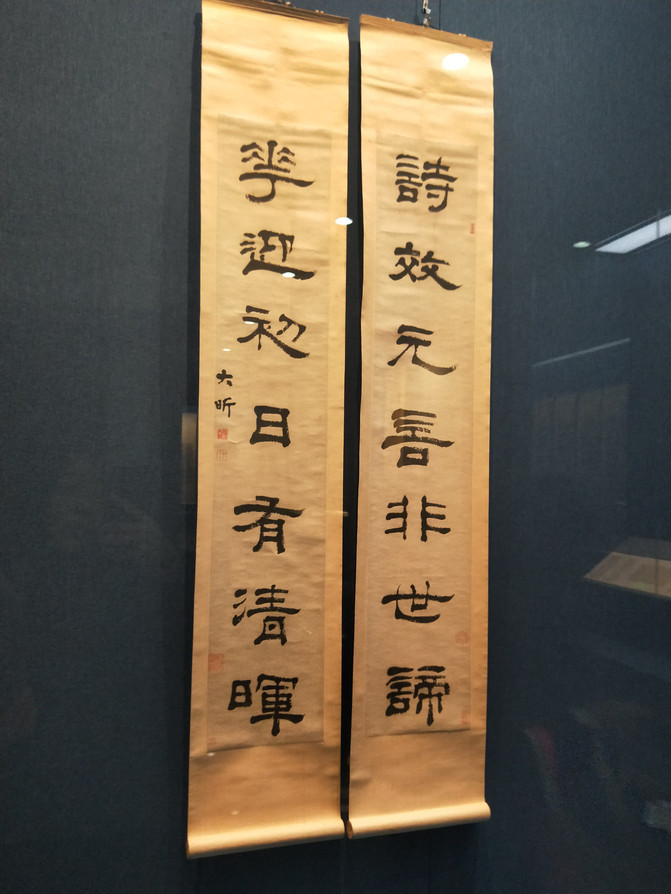 詩效元音非世諦
華迎初日有清暉
大昕